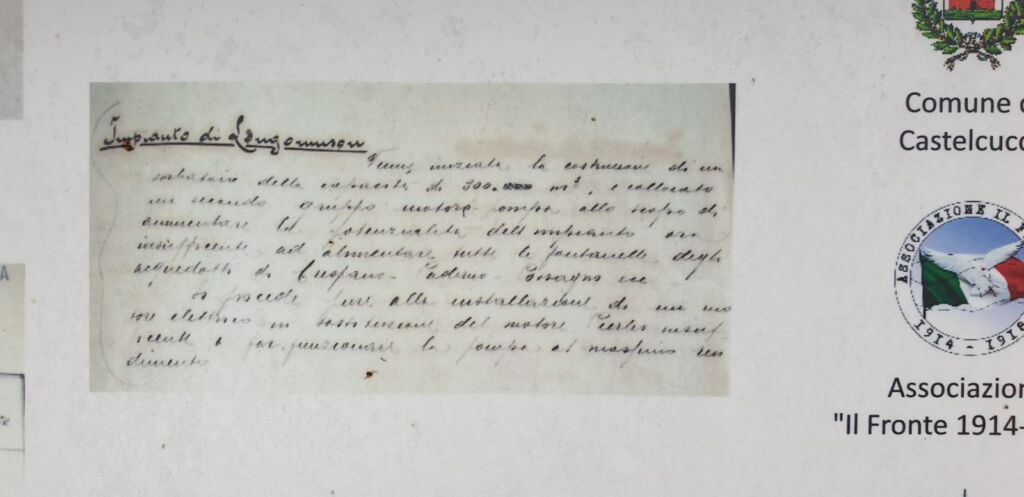 Impianto di Longomuson
Fu iniziata la costruzione di un
serbatoio della capacità di 300 m³, e collocato
un secondo gruppo motore pompa allo scopo di
aumentare la potenzialità dell'impianto ora
insufficiente ad alimentare tutte le fontanelle degli
acquedotti di Crespano - Paderno - Possagno ecc
Si procede pure alla installazione di un mo
tore elettrico in sostituzione del motore insuf
ficiente a far funzionare la pompa al massimo ren
dimento
Comune
Castelcucc
ASSOCIAZIONE IL F
1914 - 1918
Associazion
"Il Fronte 1914-
A